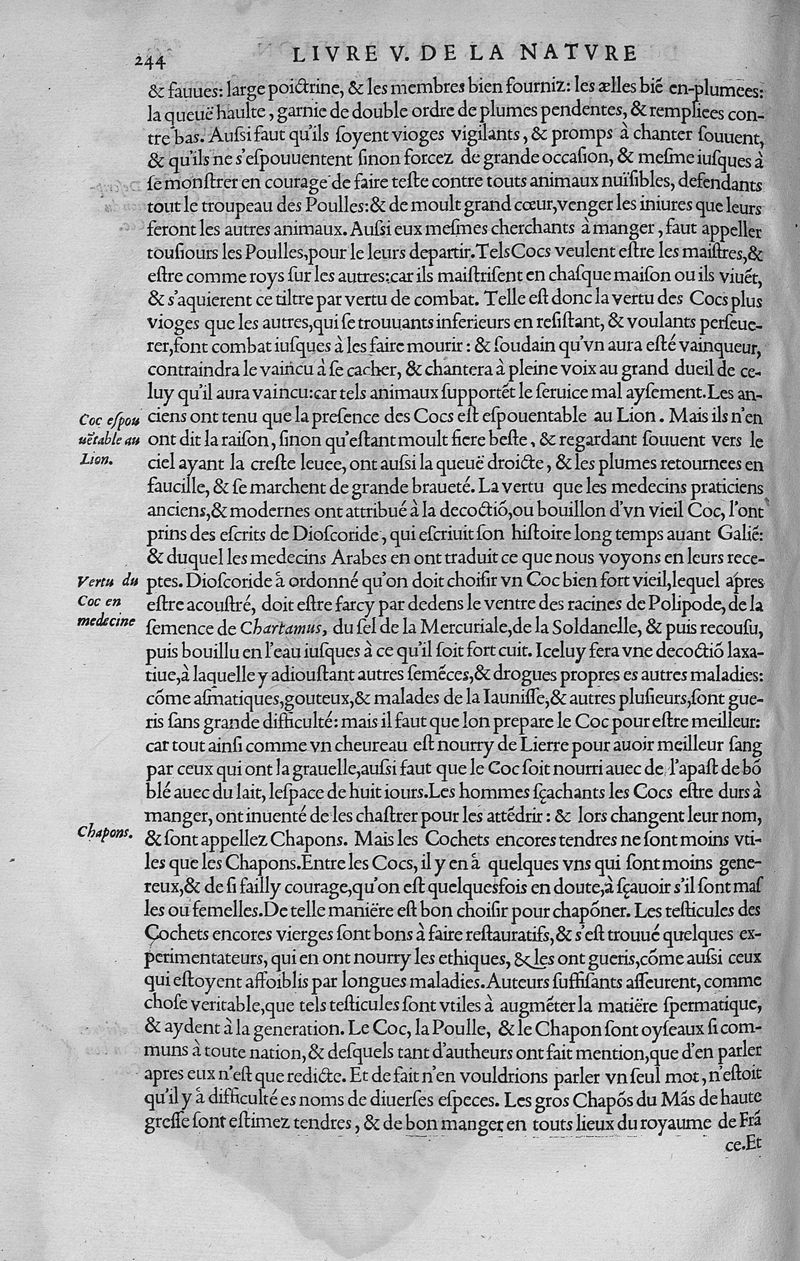 244
LIVRE V. DE LA NATVRE
& fauues: large poictrine, & les membres bien fourniz: les ælles bié en-plumees:
la queuë haulte, garnie de double ordre de plumes pendentes, & remplices con-
tre bas. Auſsi faut qu'ils ſoyent vioges vigilants, & promps à chanter ſouuent,
& qu'ils ne s'eſpouuentent ſinon forcez de grande occaſion, & meſme iuſques à
ſe monſtrer en courage de faire teſte contre touts animaux nuïſibles, defendants
tout le troupeau des Poulles: & de moult grand cœur, venger les iniures que leurs
feront les autres animaux. Auſsi eux meſmes cherchants à manger, faut appeller
touſiours les Poulles, pour le leurs departir. Tels Cocs veulent eſtre les maiſtres, &
eſtre comme roys ſur les autres: car ils maiſtriſent en chaſque maiſon ou ils viuét,
& s'aquierent ce tiltre par vertu de combat. Telle eſt donc la vertu des Cocs plus
vioges que les autres, qui ſe trouuants inferieurs en reſiſtant, & voulants perſeue-
rer, font combat iuſques à les faire mourir: & ſoudain qu'vn aura eſté vainqueur,
contraindra le vaincu à ſe cacher, & chantera à pleine voix au grand dueil de ce-
luy qu'il aura vaincu: car tels animaux ſupportét le ſeruice mal ayſement. Les an-
Coc eſpou
uētable au
Lion.
ciens ont tenu que la preſence des Cocs eſt eſpouentable au Lion. Mais ils n'en
ont dit la raiſon, ſinon qu'eſtant moult fiere beſte, & regardant ſouuent vers le
ciel ayant la creſte leuee, ont auſsi la queuë droicte, & les plumes retournees en
faucille, & ſe marchent de grande braueté. La vertu que les medecins praticiens
anciens, & modernes ont attribué à la decoctiō, ou bouillon d'vn vieil Coc, l'ont
prins des eſcrits de Dioſcoride, qui eſcriuit ſon hiſtoire long temps auant Galié:
& duquel les medecins Arabes en ont traduit ce que nous voyons en leurs rece-
Vertu du
Coc en
medecine
ptes. Dioſcoride à ordonné qu'on doit choiſir vn Coc bien fort vieil, lequel apres
eſtre acouſtré, doit eſtre farcy par dedens le ventre des racines de Polipode, de la
ſemence de Chartamus, du ſel de la Mercuriale, de la Soldanelle, & puis recouſu,
puis bouillu en l'eau iuſques à ce qu'il ſoit fort cuit. Iceluy fera vne decoctiō laxa-
tiue, à laquelle y adiouſtant autres ſeméces, & drogues propres es autres maladies:
cōme aſmatiques, gouteux, & malades de la Iauniſſe, & autres pluſieurs, ſont gue-
ris ſans grande difficulté: mais il faut que lon prepare le Coc pour eſtre meilleur:
car tout ainſi comme vn cheureau eſt nourry de Lierre pour auoir meilleur ſang
par ceux qui ont la grauelle, auſsi faut que le Coc ſoit nourri auec de l'apaſt de bō
blé auec du lait, leſpace de huit iours. Les hommes ſçachants les Cocs eſtre durs à
manger, ont inuenté de les chaſtrer pour les attēdrir: & lors changent leur nom,
Chapons.
& ſont appellez Chapons. Mais les Cochets encores tendres ne ſont moins vti-
les que les Chapons. Entre les Cocs, il y en à quelques vns qui ſont moins gene-
reux, & de ſi failly courage, qu'on eſt quelqueſfois en doute, à ſçauoir s'il ſont maſ
les ou femelles. De telle maniëre eſt bon choiſir pour chapōner. Les teſticules des
Cochets encores vierges ſont bons à faire reſtauratifs, & s'eſt trouué quelques ex-
perimentateurs, qui en ont nourry les ethiques, & les ont gueris, cōme auſsi ceux
qui eſtoyent affoiblis par longues maladies. Auteurs ſuffiſants aſſeurent, comme
choſe veritable, que tels teſticules ſont vtiles à augméter la matiëre ſpermatique,
& aydent à la generation. Le Coc, la Poulle, & le Chapon ſont oyſeaux ſi com-
muns à toute nation, & deſquels tant d'autheurs ont fait mention, que d'en parler
apres eux n'eſt que redicte. Et de fait n'en vouldrions parler vn ſeul mot, n'eſtoit
qu'il y à difficulté es noms de diuerſes eſpeces. Les gros Chapōs du Mās de haute
greſſe ſont eſtimez tendres, & de bon manger en touts lieux du royaume de Frā
ce. Et